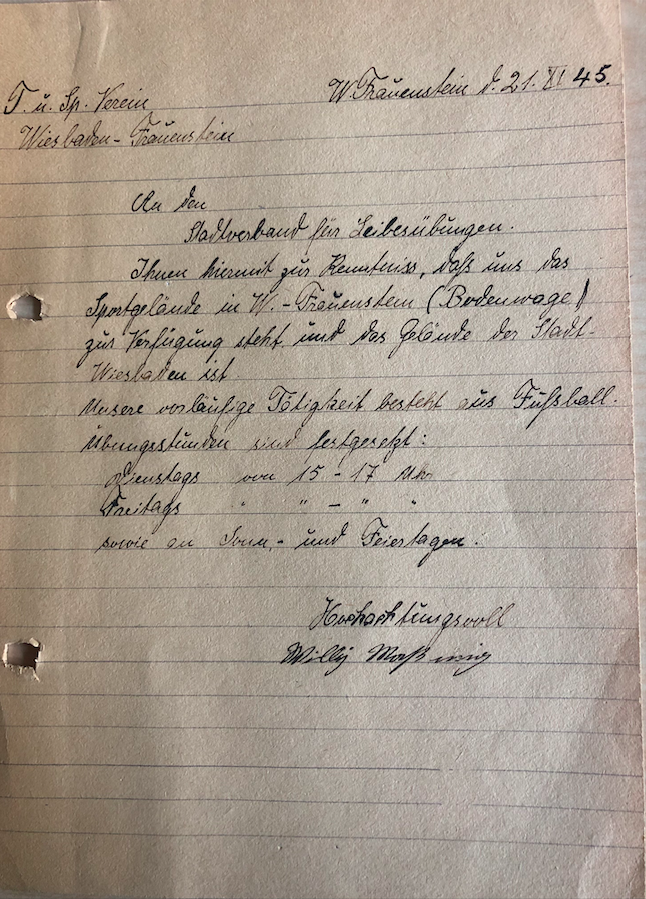 T. u. Sp. Verein
W. Frauenstein d. 21. XI 45.
Wiesbaden - Frauenstein
An den
Stadtverband für Leibesübungen.
Ihnen hiermit zur Kenntniss, daß uns das
Sportgelände in W. - Frauenstein (Bodenwage)
zur Verfügung steht und das Gelände der Stadt-
Wiesbaden ist.
Unsere vorläufige Tätigkeit besteht aus Fußball.
Übungsstunden sind festgesetzt:
Dienstags von 15 - 17 Uhr
Freitags " " - " "
sowie an Sonn,- und Feiertagen.
Hochachtungsvoll
Willy